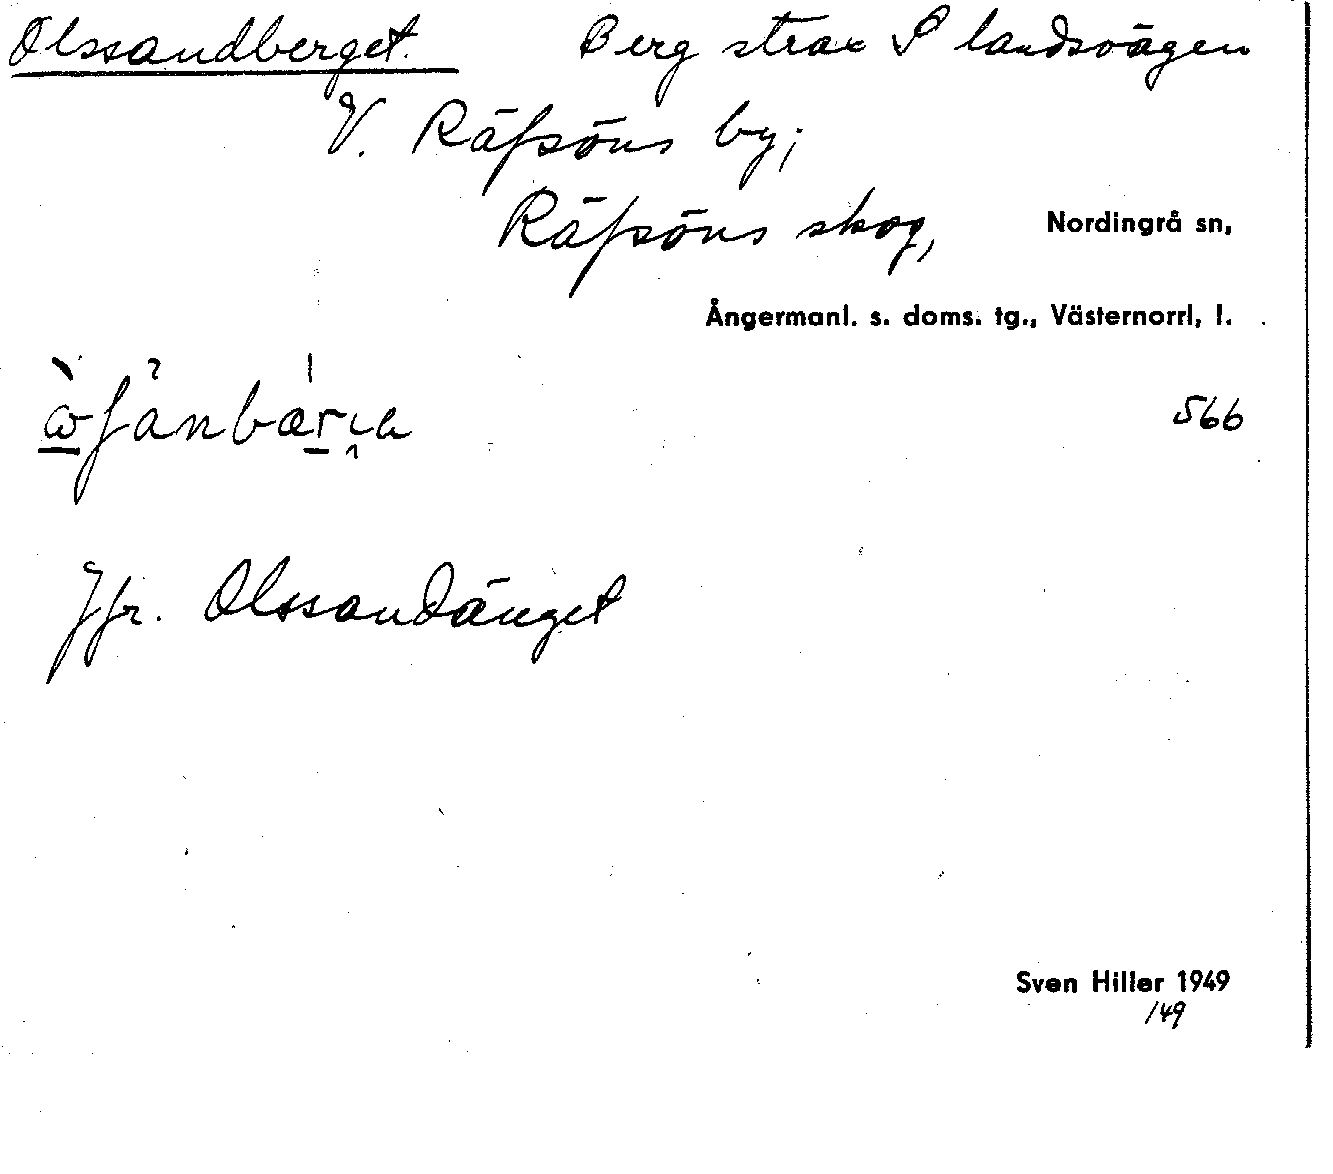 Olssandberget. Berg strax S landsvägen
V. Räfsöns by;
Räfsöns skog, Nordingrå sn,
Ångermanl. s. doms. tg., Västernorrl, l.
566
Jfr. Olssandänget
Sven Hiller 1949
149